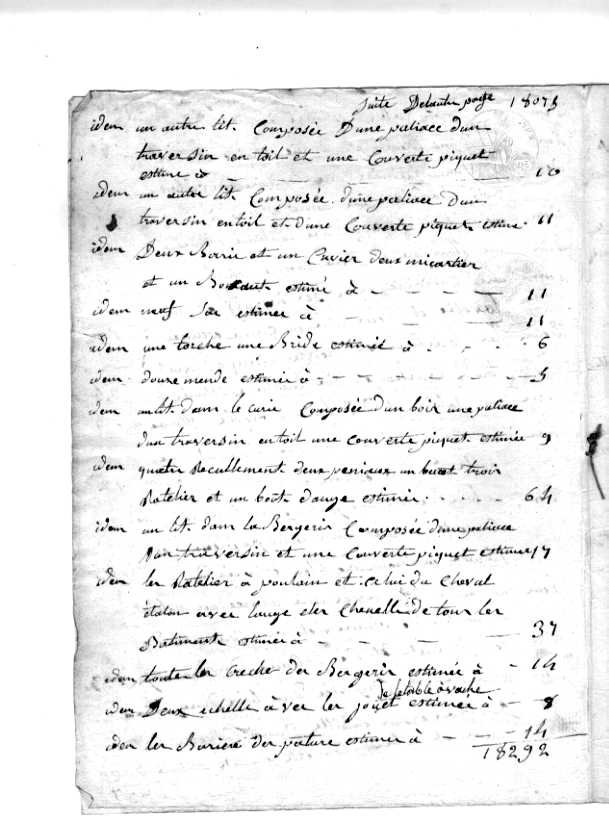 suite Delautre page 18075
idem un autre lit. Composée D'une paliace d'un
traversin en toil et une Couverte piquet
estimé à 10
idem un autre lit Composée d'une paliace d'un
traversin en toil et d'une Couverte piquet estime 11
idem Deux Barie et un Cuvier deux
et un estimé à 11
idem neuf Sac estimer à 11
idem une torche une Bride estimée à 6
idem douze mende estimée à 5
idem un lit. dans le curie Composée d'un bois une paliace
d'un traversin en toil une couverte piquet estimée 9
idem quatre Recullement deux un trois
Ratelier et un bout d'auge estimée 64
idem un lit. dans la Bergerie Composée d'une paliace
d'un traversin et une Couverte piquet estimee 17
idem les Ratelier à poulain et celui du Cheval
étalon avec l'auge des de tous les
Batiment estimée à 37
idem toute les creche des Bergerie estimée à 14
De letable à vache
idem Deux echelle à ver les estimée à 8
idem les Bariere des pature estimer à 14
18292